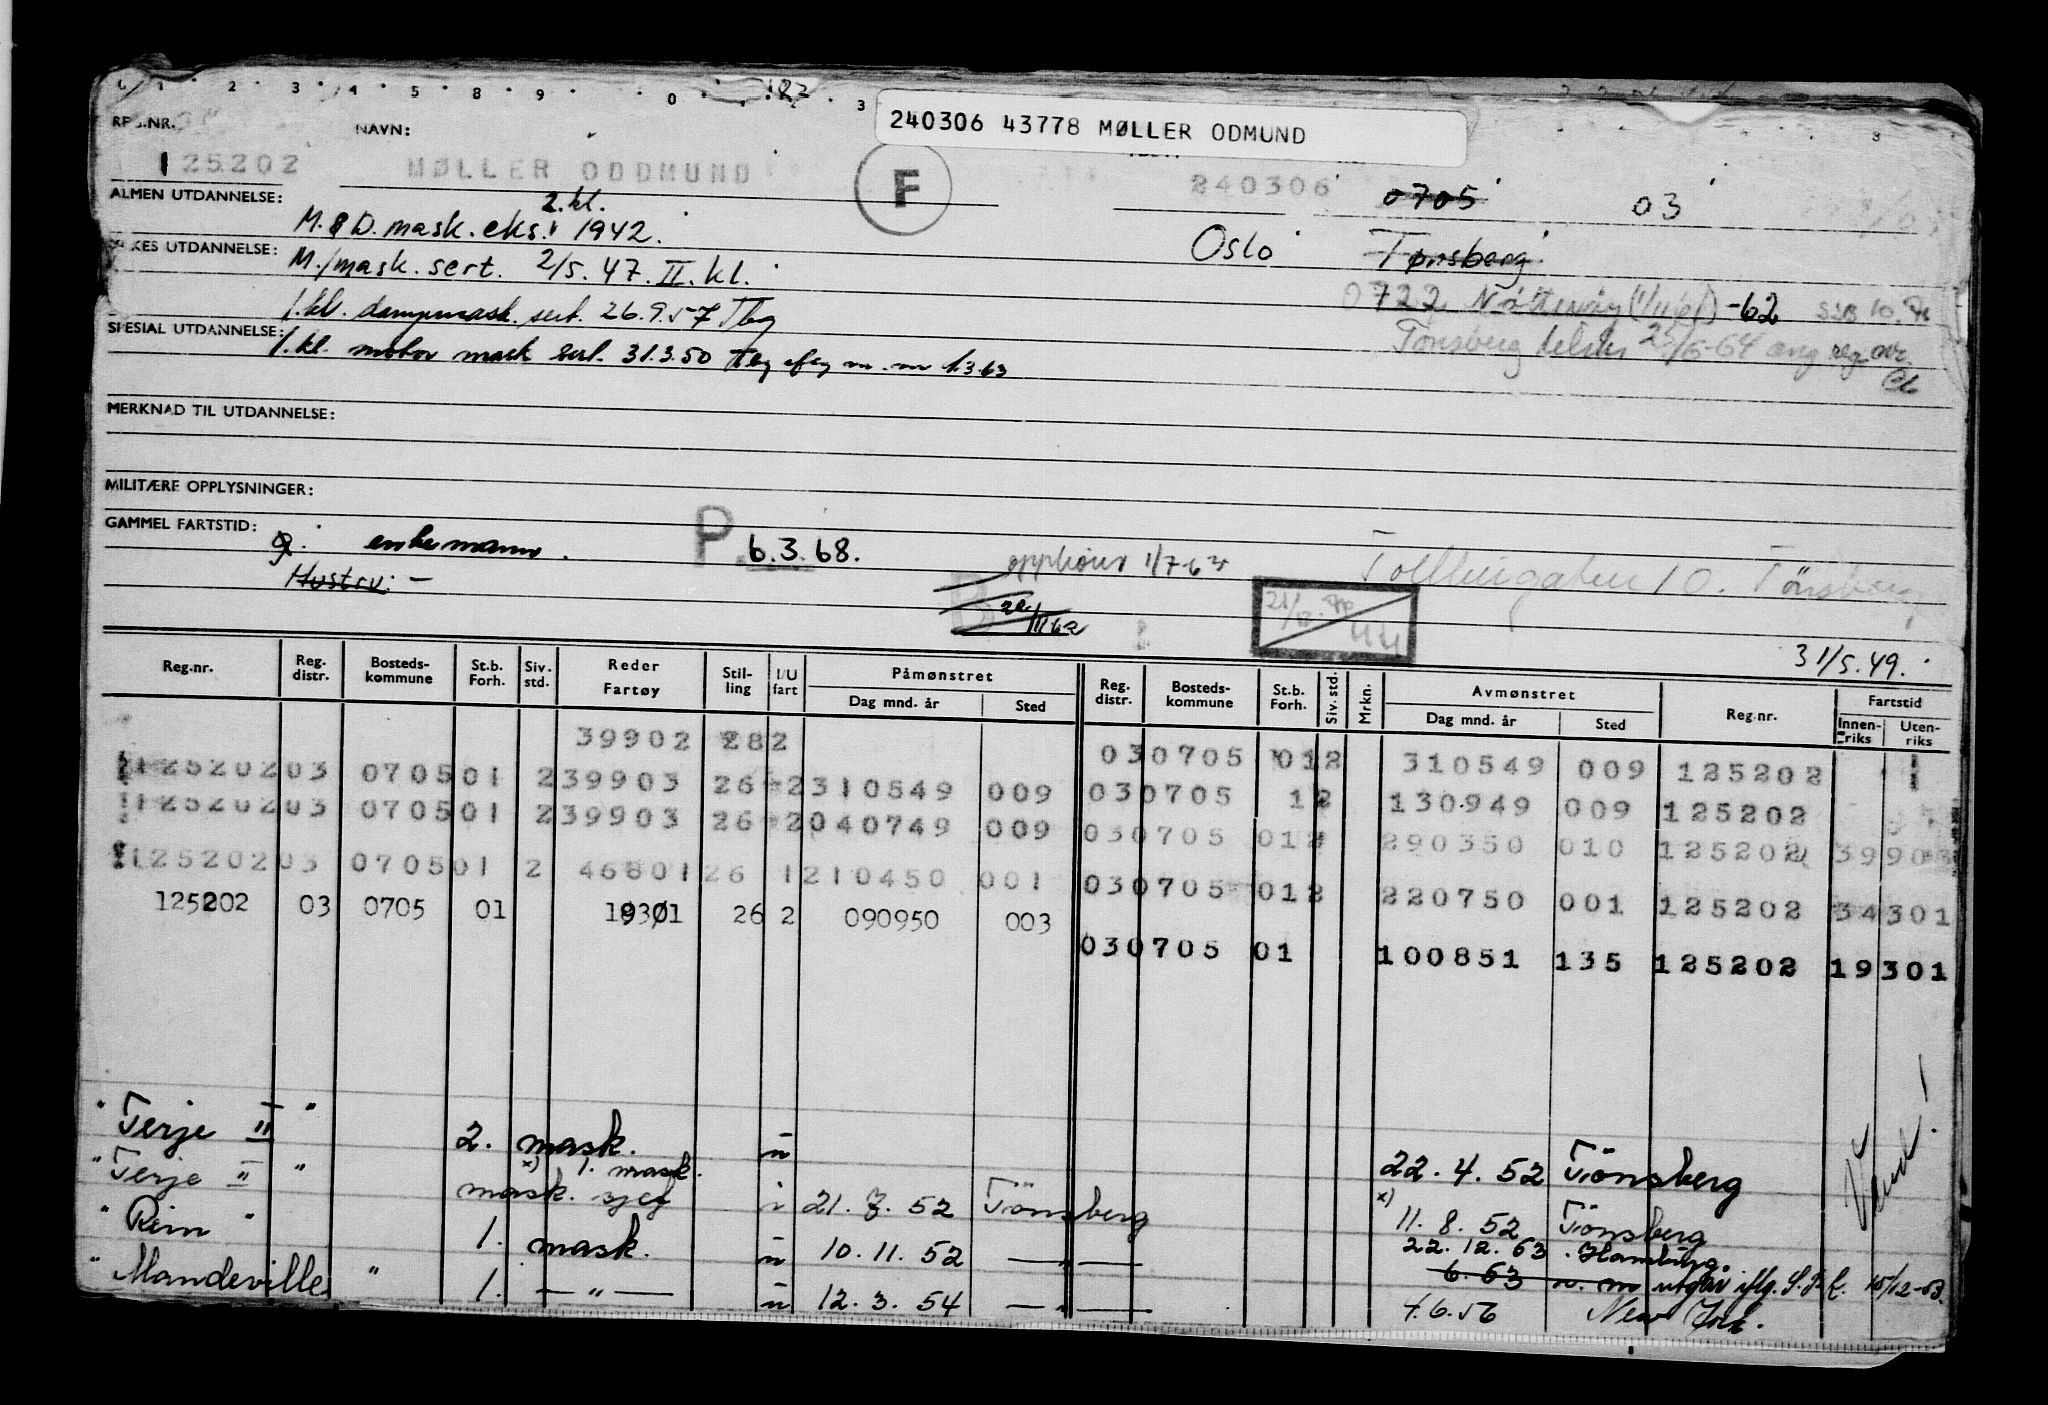 240306 43778 MØLLER ODMUND
REG.NR. NAVN:
125202 MØLLER ODDMUND F 240306 0705 03
ALMEN UTDANNELSE: 2. kl.
M. & D. mask. eks. 1942. Oslo Tønsberg
YRKES UTDANNELSE: M./mask. sert. 2/5. 47. II. kl.
0722 Nøtterøy (1/11 61) -62
1. kl. dampmask. sert. 26.9.57 Tbg
Tønsberg 25/6-64 ang reg nr.
SPESIAL UTDANNELSE: 1. kl. motor mask sert. 31.3.50 Tbg 1.3.63
MERKNAD TIL UTDANNELSE:
MILITÆRE OPPLYSNINGER:
GAMMEL FARTSTID:
g. enkemann. P. 6.3.68. opphører 1/7-63
Hustru: —
10. Tönsberg
31/5.49.
Reg.nr. Reg. distr. Bosteds-kommune St.b. Forh. Siv. std. Reder Fartøy Stil-ling I/U fart Påmønstret Dag mnd. år Sted Reg. distr. Bosteds-kommune St.b. Forh. Siv. std. Mrkn. Avmønstret Dag mnd. år Sted Reg.nr. Fartstid Innen-riks Uten-riks
39902 282 030705 012 310549 009 125202
125202 03 0705 01 2 39903 26 2 310549 009 030705 12 130949 009 125202
125202 03 0705 01 2 39903 26 2 040749 009 030705 012 290350 010 125202 39903
125202 03 0705 01 2 46801 26 1 210450 001 030705 012 220750 001 125202 34301
125202 03 0705 01 19301 26 2 090950 003
030705 01 100851 135 125202 19301
"Terje II" 2. mask. u 22. 4. 52 Tönsberg
"Terje II" x) 1. mask. mask. sjef i 21. 7. 52 Tönsberg x) 11. 8. 52 Tönsberg
"Rein" 1. mask. u 10. 11. 52 — " — 22. 12. 53 Hamburg.
6. 53 utgår iflg. 10/12-53.
"Mandeville" 1. — " — u 12. 3. 54 — " — 4.6.56 New York.